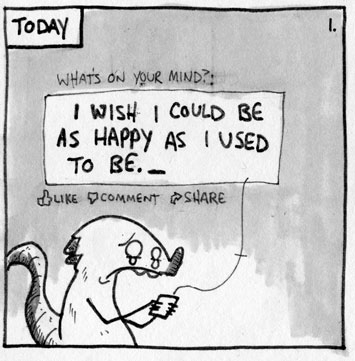 TODAY
1.
WHAT'S ON YOUR MIND?:
I WISH I COULD BE
AS HAPPY AS I USED
TO BE._
LIKE COMMENT SHARE